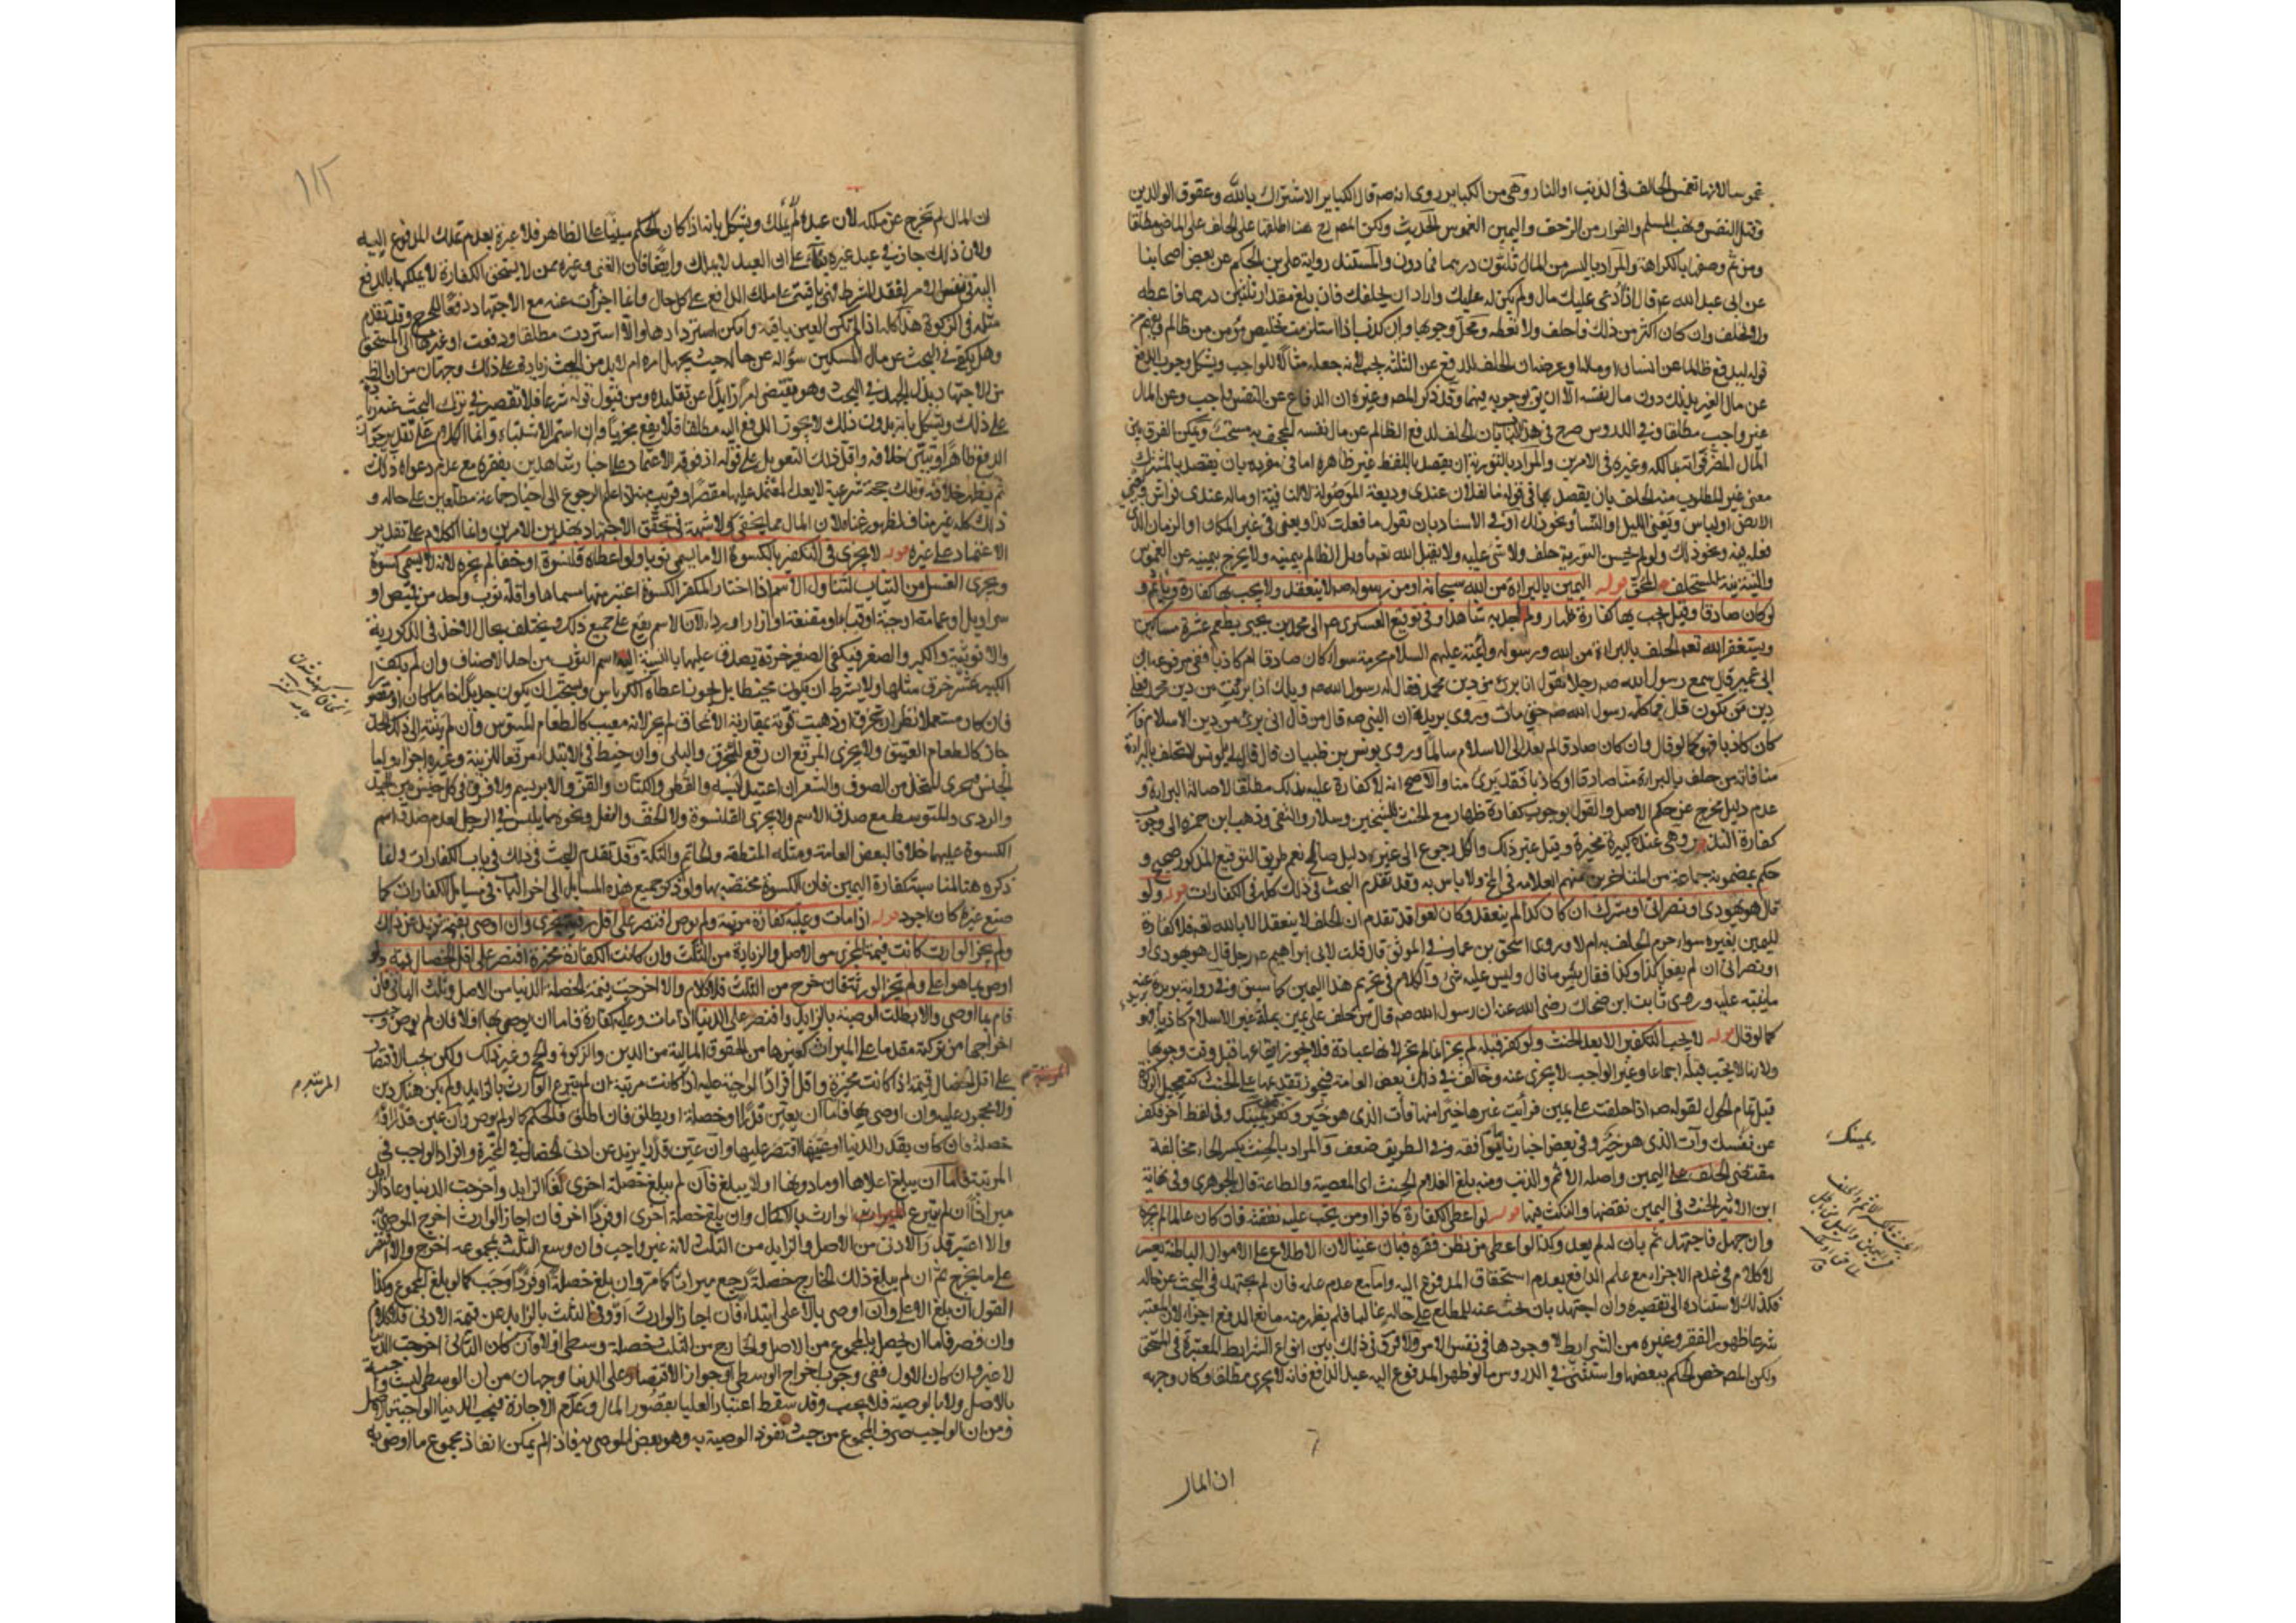 غموسا لانها تغمس الحالف فى الذنب او النار وهى من الكباير روى انه صه قال الكباير الاشتراك بالله وعقوق الوالدين
وقتل النفس ونهب المسلم والفرار من الزحف واليمين الغموس الحديث ولكن المص رح هنا اطلقها على الحلف على الماضى مطلقا
ومن ثم وصفها بالكراهة والمراد باليسير من المال ثلثون درهما فما دون والمستند رواية على بن الحكم عن بعض اصحابنا
عن ابى عبد الله ع قال اذا ادعى عليك مال ولم يكن له عليك واراد ان يحلفك فان بلغ مقدار ثلثين درهما فاعطه
ولا تحلف وان كان اكثر من ذلك فاحلف ولا تعطه ومحل وجوبها وان كذب اذا استلزمت تخليص مؤمن من ظالم
قوله ليدفع ظالما عن انسان او مال وعرض ان الحلف للدفع عن الثلثة يجب لانه جعله مثالا للواجب ويشكل وجوب الدفع
عن مال الغير بذلك دون مال نفسه الا ان يق بوجوبه فيهما وقد ذكر المص وغيره ان الدفاع عن النفس واجب وعن المال
غير واجب مطلقا وفى الدروس صرح فى بان الحلف لدفع الظالم عن مال نفسه المجحف به مستحب ويمكن الفرق بين
المال المضر فواته بمالكه وغيره فى الامرين والمراد بالتورية ان يقصد باللفظ غير ظاهره اما فى مفرده بان يقصد بالمشترك
معنى غير المطلوب منه الحلف بان يقصد بما فى قوله ما لفلان عندى وديعة الموصولة لا النافية او ماله عندى فراش ويعنى
الارض او لباس ويعنى الليل او النساء ونحو ذلك او فى الاسناد بان يقول ما فعلت كذا ويعنى فى غير المكان او الزمان الذى
فعله فيه ونحو ذلك ولو لم يحسن التورية حلف ولا شئ عليه ولا يقبل الله تعه تاويل الظالم بيمينه ولا يخرج بيمينه عن الغموس
والنية نية المستحلف المحق قوله اليمين بالبراءة من الله سبحانه او من رسوله صه لا ينعقد ولا يجب بها كفارة وياثم و
لو كان صادقا وقيل يجب بها كفارة ظهار ولم اجد به شاهدا وفى توقيع العسكرى ع الى محمد بن يحيى يطعم عشرة مساكين
ويستغفر الله تعه الحلف بالبراءة من الله ورسوله والائمة عليهم السلام محرمة سواء كان صادقا ام كاذبا ففى مرفوعة ابن
ابى عمير قال سمع رسول الله صه رجلا يقول انا برئ من دين محمد فقال له رسول الله صه ويلك اذا برئت من دين محمد فعلى
دين من تكون قال فما كلمه رسول الله صه حتى مات وروى بريدة ان النبى صه قال من قال انى برئ من دين الاسلام فا
كان كاذبا فهو كما لو قال وان كان صادقا لم يعد الى الاسلام سالما وروى يونس بن ظبيان قال قال لى يا يونس لا تحلف بالبراءة
منا فانه من حلف بالبراءة منا صادقا او كاذبا فقد برئ منا والاصح انه لا كفارة عليه بذلك مطلقا لاصالة البراءة و
عدم دليل مخرج عن حكم الاصل والقول بوجوب كفارة ظهار مع الحنث للشيخين وسلار والتقى وذهب ابن حمزه الى وجوب
كفارة النذر وهى عنده كبيرة مخيرة وقيل غير ذلك والكل رجوع الى غير دليل صالح نعم طريق التوقيع المذكور صحيح و
حكم بمضمونه جماعة من المتاخرين منهم العلامه فى المخ ولا باس به وقد تقدم البحث فى ذلك كله فى الكفارات قوله ولو
قال هو يهودى او نصرانى او مشرك ان كان كذا لم ينعقد وكان لغوا قد تقدم ان الحلف لا ينعقد الا بالله تعه فلا كفارة
لليمين بغيره سواء حرم الحلف به ام لا وروى اسحق بن عمار فى الموثق قال قلت لابى ابراهيم ع رجل قال هو يهودى او
او نصرانى ان لم يفعل كذا وكذا فقال بئس ما قال وليس عليه شئ والكلام فى تحريم هذا اليمين كما سبق وفى رواية بريدة عنه
ما ينبه عليه وروى ثابت ابن ضحاك رضى الله عنه ان رسول الله صه قال من حلف على يمين بملة غير الاسلام كاذبا فهو
كما لو قال قوله لا يجب التكفير الا بعد الحنث ولو كفر قبله لم يجزه انما لم يجز لانها عبادة فلا يجوز ايقاعها قبل وقت وجوبها
ولانها لا تجب قبله اجماعا وغير الواجب لا يجزى عنه وخالف فى ذلك بعض العامة فجوز تقديمها على الحنث كتعجيل الزكاة
قبل تمام الحول لقوله صه اذا حلفت على يمين فرايت غيرها خيرا منها فات الذى هو خير وكفر عن يمينك وفى لفظ آخر فكفر
عن نفسك وآت الذى هو خير وفى بعض اخبارنا ما يوافقه وفى الطريق ضعف والمراد بالحنث بكسر الحاء مخالفة
مقتضى الحلف على اليمين واصله الاثم والذنب ومنه بلغ الغلام الحنث اى المعصية والطاعة قال الجوهرى وفى نهاية
ابن الاثير الحنث فى اليمين نقضها والنكث فيها قوله لو اعطى الكفارة كافرا او من يجب عليه نفقته فان كان عالما لم يجزه
وان جهل فاجتهد ثم بان له لم يعد وكذا لو اعطى من يظن فقره فبان غنيا لان الاطلاع على الاموال الباطنة يعسر
لا كلام فى عدم الاجزاء مع علم الدافع بعدم استحقاق المدفوع اليه واما مع عدم علمه فان لم يجتهد فى البحث عن حاله
فكذلك لاستناده الى تقصيره وان اجتهد بان بحث عنه للمطلع على حاله غالبا فلم يظهر منه مانع الدفع اجزء لان المعتبر
شرعا ظهور الفقر وغيره من الشرايط لا وجودها فى نفس الامر ولا فرق فى ذلك بين انواع الشرايط المعتبرة فى المستحق
ولكن المص خص الحكم ببعضها واستثنى فى الدروس ما لو ظهر المدفوع اليه عبد الدافع فانه لا يجزى مطلقا وكان وجهه
يمينك
ان المال
١١٢
ان المال لم يخرج عن ملكه لان عبده لم يملك ويشكل بانه اذا كان الحكم مبنيا على الظاهر فلا عبرة بعدم تملك المدفوع اليه
ولان ذلك جار فى عبد غيره بناء على ان العبد لا يملك وايضا فان الغنى وغيره ممن لا يستحق الكفارة لا يملكها بالدفع
اليه فى نفس الامر لفقد الشرط فهى باقية على ملك الدافع على كل حال وانما اجزات عنه مع الاجتهاد دفعا للحرج وقد تقدم
مثله فى الزكوة هذا كله اذا لم تكن العين باقية وامكن استردادها والا استردت مطلقا ودفعت او غيرها الى المستحق
وهل يكفى فى البحث عن مال المسكين سؤاله عن حاله حيث يجهل امره ام لابد من البحث زيادة على ذلك وجهان من ان الظ
من الاجتهاد بذل الجهد فى البحث وهو يقتضى امرا زايدا عن تقليده ومن قبول قوله شرعا فلا تقصير فى ترك البحث عنه زيادة
على ذلك ويشكل بانه بدون ذلك لا يجوز الدفع اليه مطلقا فلا يقع مجزيا وان استمر الاشتباه وانما الكلام على تقدير جواز
الدفع ظاهرا وتبين خلافه واقل ذلك التعويل على قوله اذ فوقه الاعتماد على اخبار شاهدين بفقره مع عدم دعواه ذلك
ثم يظهر خلافه وتلك حجة شرعية لا يعد المعتمد عليها مقصرا وقريب منه الرجوع الى اخبار جماعة مطلعين على حاله و
ذلك كله غير مناف لظهور غناه لان المال مما يخفى ولا شبهة فى تحقق الاجتهاد بهذين الامرين وانما الكلام على تقدير
الاعتماد على غيره قوله لا يجزى فى التكفير بالكسوة الا ما يسمى ثوبا ولو اعطاه قلنسوة او خفا لم يجزه لانه لا يسمى كسوة
ويجزى الغسيل من الثياب لتناول الاسم اذا اختار المكفر الكسوة اعتبر منها مسماها واقله ثوب واحد من قميص او
سراويل او عمامة او جبة او قباء او مقنعة او ازار او رداء لان الاسم يقع على جميع ذلك ويختلف بحال الاخذ فى الذكورية
والانوثية والكبر والصغر فيكفى الصغير خرقة يصدق عليها بالنسبة اليه اسم الثوب من احد الاصناف وان لم يكف
الكبير عشر خرق مثلها ولا يشترط ان يكون مخيطا بل يجوز اعطاه الكرباس ويستحب ان يكون جديدا خاما كان او مقصورا
فان كان مستعملا نظر ان تخرق او ذهبت قوته بمقاربة الانمحاق لم يجز لانه معيب كالطعام المسوس وان لم ينته الى ذلك الحد
جاز كالطعام العتيق ولا يجزى المرقع ان رقع للتخرق والبلى وان خيط فى الابتداء مرقعا للزينة وغيره اجزا ولما
الجنس فيجزى المتخذ من الصوف والشعر ان اعتيد لبسه والقطن والكتان والقز والابريسم ولا فرق فى كل جنس بين الجيد
والردى والمتوسط مع صدق الاسم ولا يجزى القلنسوة ولا الخف والنعل ونحوه مما يلبس فى الرجل لعدم صدق اسم
الكسوة عليهما خلافا لبعض العامة ومثله المنطقه والخاتم والتكة وقد تقدم البحث فى ذلك فى باب الكفارات وانما
ذكره هنا لمناسبة كفارة اليمين فان الكسوة مختصه بها ولو ذكر جميع هذه المسايل الى آخر الباب فى مسايل الكفارات كما
صنع غيره كان اجود قوله اذا مات وعليه كفارة مرتبة ولم يوص اقتصر على اقل رقبة تجزى وان اوصى بقيمة تزيد عن ذلك
ولم يجز الوارث كانت قيمة المجزى من الاصل والزيادة من الثلث وان كانت الكفارة مخيرة اقتصر على اقل الخصال قيمة ولو
اوصى بما هو اعلى ولم يجز الورثة فان خرج من الثلث فلا كلام والا اخرجت قيمة الخصلة الدنيا من الاصل وثلث الباقى فان
قام بما اوصى والا بطلت الوصية بالزايد واقتصر على الدنيا اذا مات وعليه كفارة فاما ان يوصى بها او لا فان لم يوص وجب
اخراجها من تركته مقدما على الميراث كغيرها من الحقوق المالية من الدين والزكوة والحج وغير ذلك ولكن يجب الاقتصار
على اقل الخصال قيمة اذا كانت مخيرة واقل افراد الواجبة عليه اذا كانت مرتبة ان لم يتبرع الوارث بالزايد ولم يكن هناك دين
ولا محجور عليه وان اوصى بها فاما ان يعين قدرا او خصلة او يطلق فان اطلق فالحكم كما لو لم يوص وان عين قدرا او
خصلة فان كان بقدر الدنيا او عينها اقتصر عليها وان عين قدرا يزيد عن ادنى الخصال فى المخيرة وافراد الواجب فى
المرتبة فاما ان يبلغ اعلاها او ما دونها او لا يبلغ فان لم يبلغ خصلة اخرى لغا الزايد واخرجت الدنيا وعاد الزايد
ميراثا ان لم يتبرع الوارث بالاكمال وان بلغ خصلة اخرى او فردا آخر فان اجاز الوارث اخرج الموصى به
والا اعتبر قدر الادنى من الاصل والزايد من الثلث لانه غير واجب فان وسع الثلث بمجموعه اخرج والا اقتصر
على ما يخرج ثم ان لم يبلغ ذلك الخارج خصلة رجع ميراثا كما مر وان بلغ خصلة او فردا وجب كما لو بلغ المجموع وكذا
القول ان بلغ الاعلى وان اوصى بالاعلى ابتداء فان اجاز الوارث او وفى الثلث بالزايد عن قيمة الادنى فلا كلام
وان قصر فاما ان يحصل بالمجموع من الاصل والخارج من الثلث خصلة وسطى او لا فان كان الثانى اخرجت الدنيا
لا غير وان كان الاول ففى وجوب اخراج الوسطى او جواز الاقتصار على الدنيا وجهان من ان الوسطى ليست واجبة
بالاصل ولا بالوصية فلا يجب وقد سقط اعتبار العليا بقصور المال وعدم الاجازة فيجب الدنيا الواجبة بالاصل
ومن ان الواجب صرف المجموع من حيث نفوذ الوصية به وهو بعض الموصى به فاذا لم يمكن انفاذ مجموع ما اوصى به